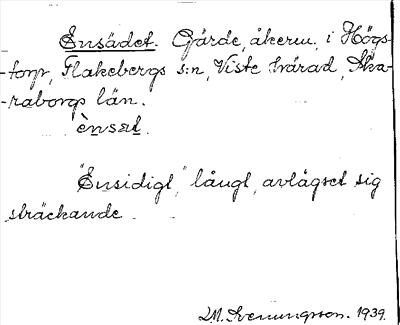 Ensädet. Gärde, åkeren, i Högs-
-torp, Flakebergs s:n, Viste härad, Ska-
-raborgs län.
ènsæt.
"Ensidigt," långt, avlägset sig
sträckande.
M. Svenungsson. 1939.